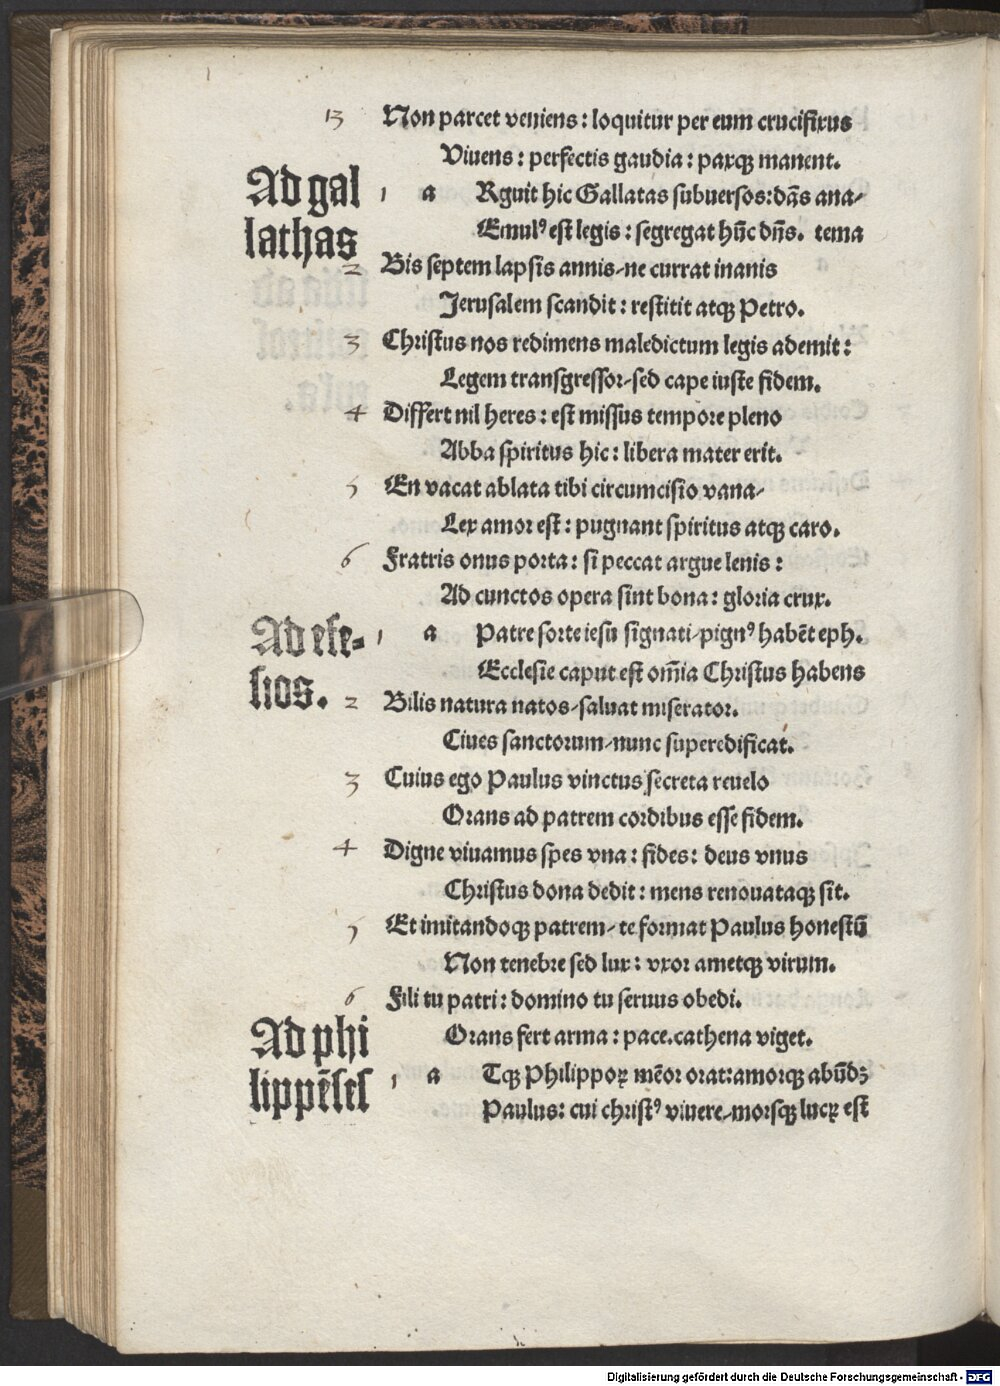 13 Non parcet veniens: loquitur per eum crucifixus
Viuens: perfectis gaudia: paxqꝫ manent.
Ad gal
lathas
1 a Rguit hic Gallatas subuersos: dās ana/
Emulꝰ est legis: segregat hūc dn̄s. tema
2 Bis septem lapsis annis/ne currat inanis
Jerusalem scandit: restitit atqꝫ Petro.
3 Christus nos redimens maledictum legis ademit:
Legem transgressor/sed cape iuste fidem.
4 Differt nil heres: est missus tempore pleno
Abba spiritus hic: libera mater erit.
5 En vacat ablata tibi circumcisio vana/
Lex amor est: pugnant spiritus atqꝫ caro.
6 Fratris onus porta: si peccat argue lenis:
Ad cunctos opera sint bona: gloria crux.
Ad efe-
sios.
1 a Patre forte iesu signati/pignꝰ habēt eph.
Ecclesie caput est om̄ia Christus habens
2 Bilis natura natos/saluat miserator.
Ciues sanctorum/nunc superedificat.
3 Cuius ego Paulus vinctus secreta reuelo
Orans ad patrem cordibus esse fidem.
4 Digne viuamus spes vna: fides: deus vnus
Christus dona dedit: mens renouataqꝫ sit.
5 Et imitandoqꝫ patrem/te format Paulus honestū
Non tenebre sed lux: vxor ametqꝫ virum.
6 Fili tu patri: domino tu seruus obedi.
Orans fert arma: pace.cathena viget.
Ad phi
lippēses
1 a Tqꝫ Philippoꝝ mēor orat: amorqꝫ abūdꝫ
Paulus: cui christꝰ viuere/morsqꝫ lucꝝ est
Digitalisierung gefördert durch die Deutsche Forschungsgemeinschaft - DFG